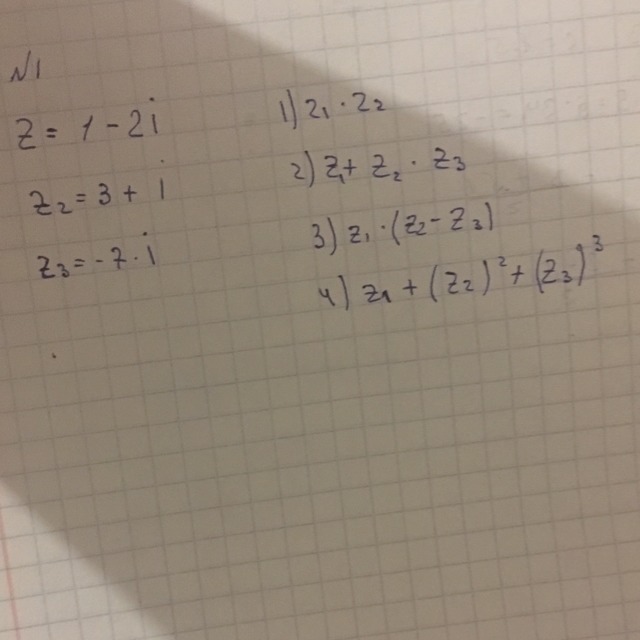 №1
z = 1 - 2i
z₂ = 3 + i
z₃ = -7 · i
1) z₁ · z₂
2) z₁ + z₂ · z₃
3) z₁ · (z₂ - z₃)
4) z₁ + (z₂)² + (z₃)³